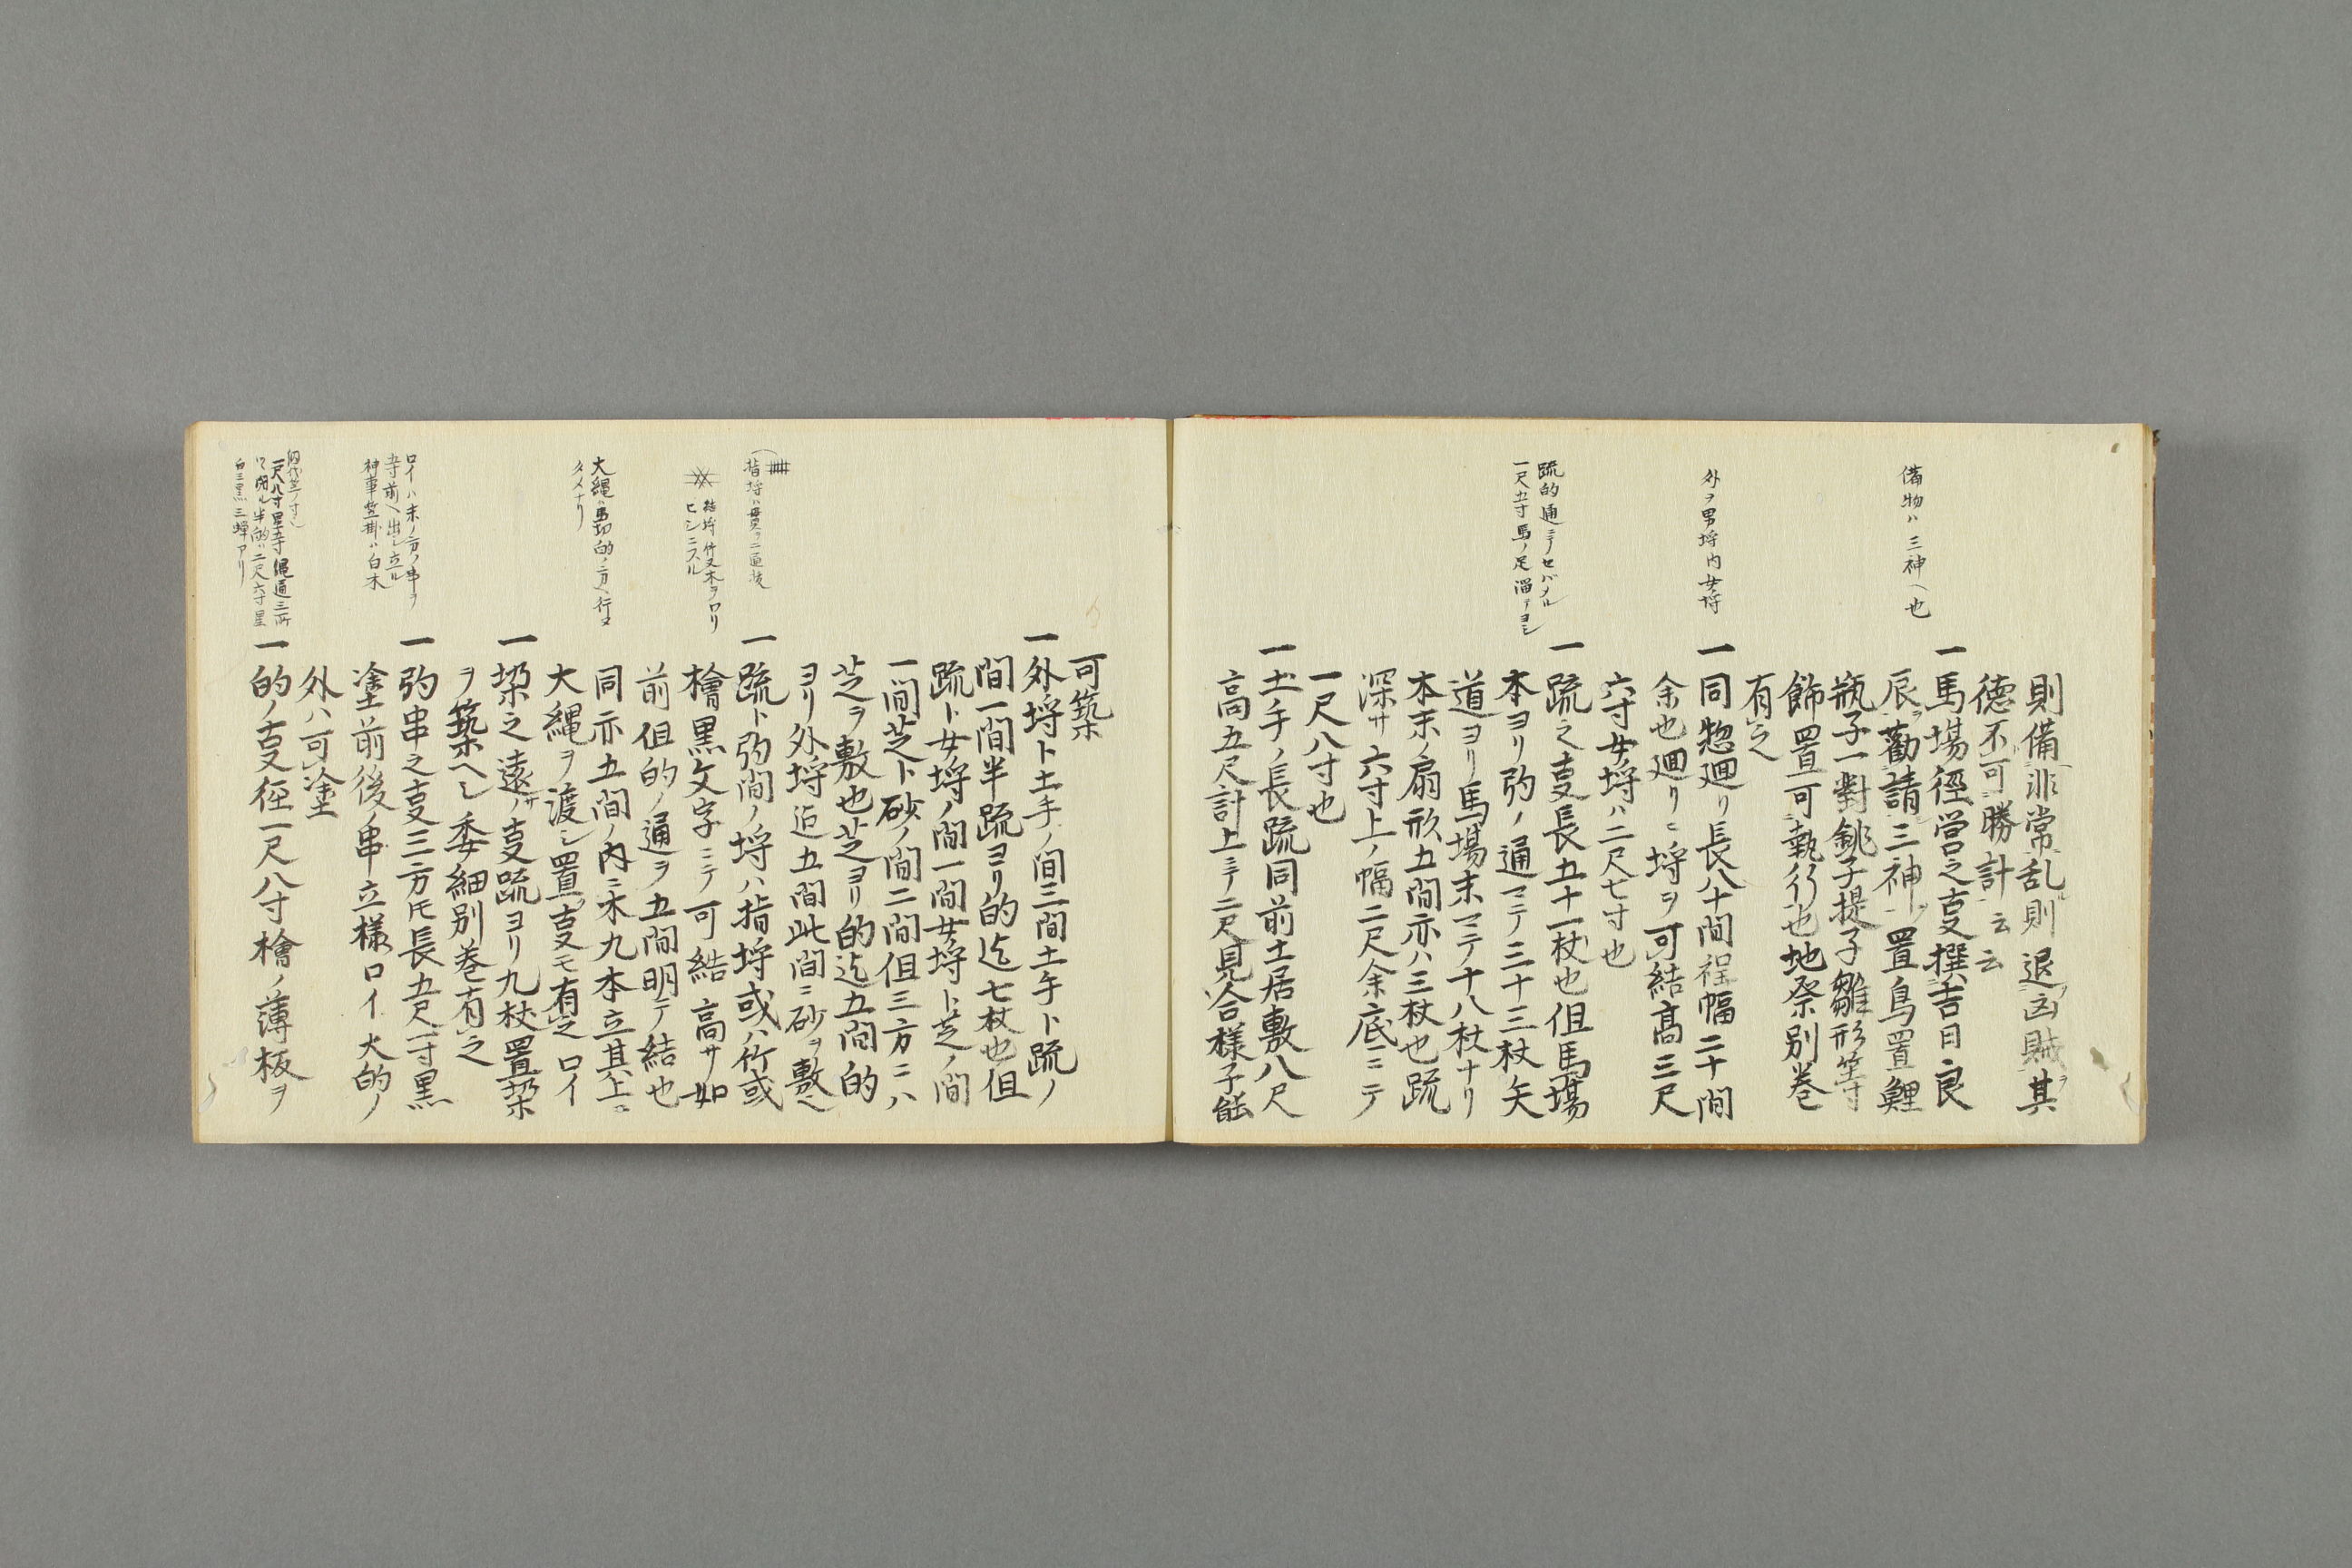 則備非常乱則退凶賊ヲ其
徳不可勝計云云
備物ハ三神ヘ也
一馬場徑営之㕝撰吉日良
辰ヲ勸請三神ヲ置鳥置鯉
瓶子一對銚子提子雛形等
飾置可執行也地祭別巻
有之
外ヲ男埒内女埒
一同惣廻リ長八十間程幅二十間
余也廻リニ埒ヲ可結高三尺
六寸女埒ハ二尺七寸也
疏的通ニテセバメル
一尺五寸馬ノ足溜テヨシ
一疏之㕝長五十一杖也但馬場
本ヨリ弓ノ通マテ三十三杖矢
道ヨリ馬場末マテ十八杖ナリ
本末ノ扇形五間亦ハ三杖也疏
深サ六寸上ノ幅二尺余底ニテ
一尺八寸也
一土手ノ長疏同前土居敷八尺
高五尺計上ニテ二尺見合様子能
可築
一外埒ト土手ノ間三間土手ト疏ノ
間一間半疏ヨリ的迄七杖也但
疏ト女埒ノ間一間女埒ト芝ノ間
一間芝ト砂ノ間二間但三方ニハ
芝ヲ敷也芝ヨリ的迄五間的
ヨリ外埒迠五間此間ニ砂ヲ敷ヘ
指埒ハ貫ヲ二通抜
一疏ト弓間ノ埒ハ指埒或ハ竹或
結埒竹又木ヲワリ
ヒシニスル
檜黒文字ニテ可結高サ如
前但的ノ通ヲ五間明テ結也
同亦五間ノ内ニ木九本立其上ニ
大縄ハ馬切的ノ方ヘ行ヌ
タメナリ
大縄ヲ渡シ置㕝モ有之ロイ
一垜之遠サノ㕝疏ヨリ九杖置垜
ヲ築ヘシ委細別巻有之
ロイハ末ノ方ノ串ヲ
五寸前ヘ出シ立ル
神事笠掛ハ白木
一弓串之㕝三方モ長五尺一寸黒
塗前後ノ串立様ロイ大的ノ
外ハ可塗
一尺八寸星五寸縄通三所
ワ内ル半的ハ二尺六寸星
白三黒三蟬アリ
一的ノ㕝径一尺八寸檜ノ薄板ヲ